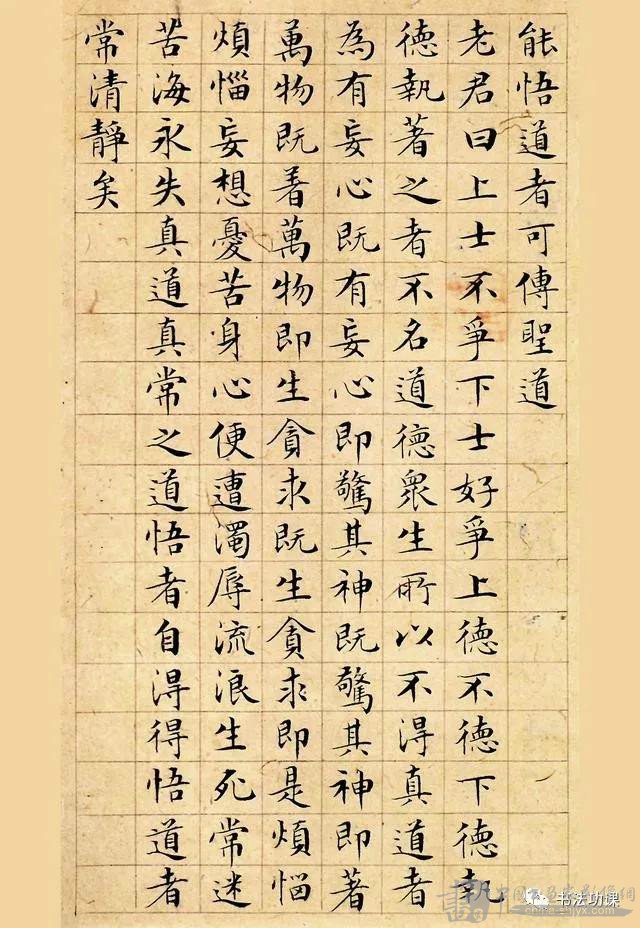 能悟道者可傳聖道
老君曰上士不爭下士好爭上德不德下德執
德執著之者不名道德眾生所以不得真道者
為有妄心既有妄心即驚其神既驚其神即著
萬物既著萬物即生貪求既生貪求即是煩惱
煩惱妄想憂苦身心便遭濁辱流浪生死常迷
苦海永失真道真常之道悟者自得得悟道者
常清靜矣
书法功课
china-shjyx.com